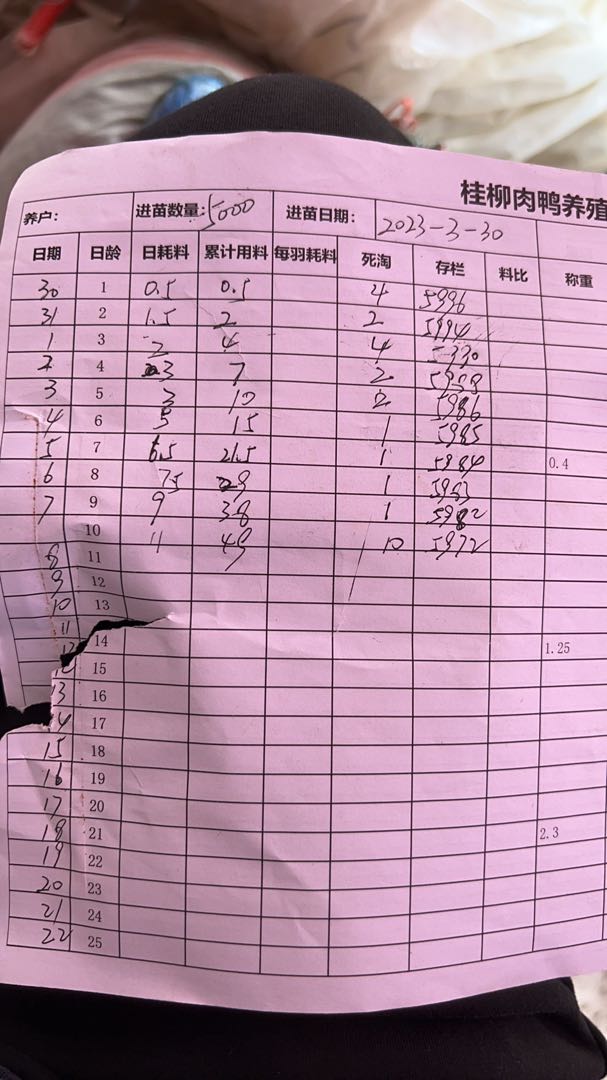 桂柳肉鸭养殖
养户: 进苗数量: 5000 进苗日期: 2023-3-30
日期 日龄 日耗料 累计用料 每羽耗料 死淘 存栏 料比 称重
30 1 0.5 0.5 4 5996
31 2 1.5 2 2 5994
1 3 2 4 4 5990
2 4 3 7 2 5988
3 5 3 10 2 5986
4 6 5 15 1 5985
5 7 6.5 21.5 1 5984 0.4
6 8 7.5 29 1 5983
7 9 9 38 1 5982
10 11 49 10 5972
8 11
9 12
10 13
11 14 1.25
12 15
13 16
14 17
15 18
16 19
17 20
18 21 2.3
19 22
20 23
21 24
22 25